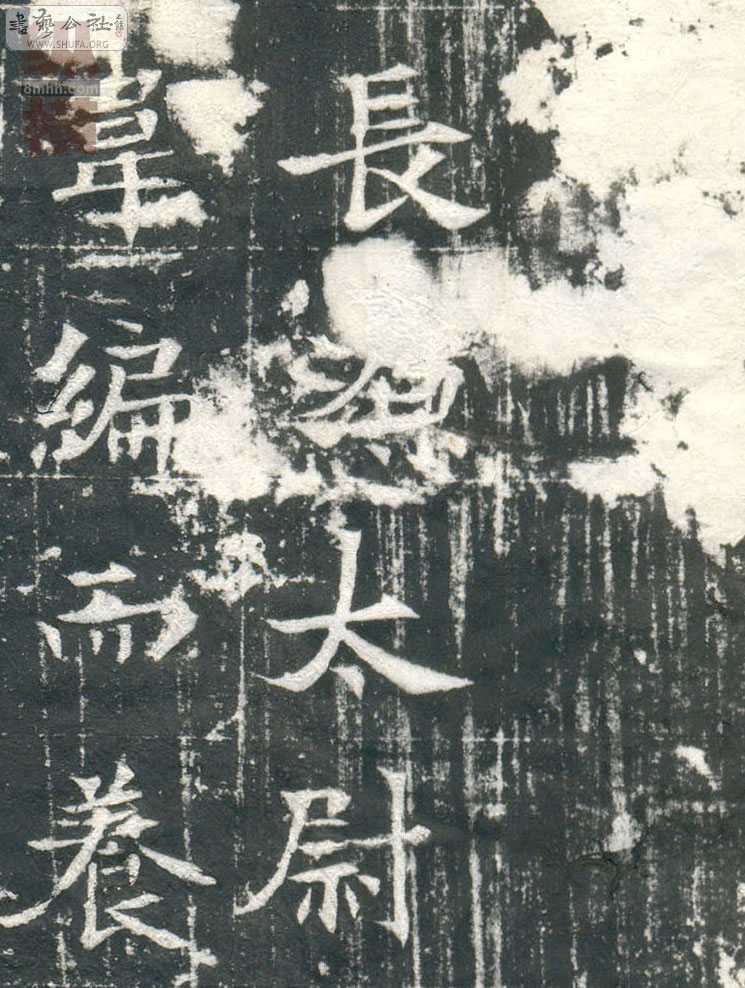 書藝公社
WWW.SHUFA.ORG
長太尉
韋編而養